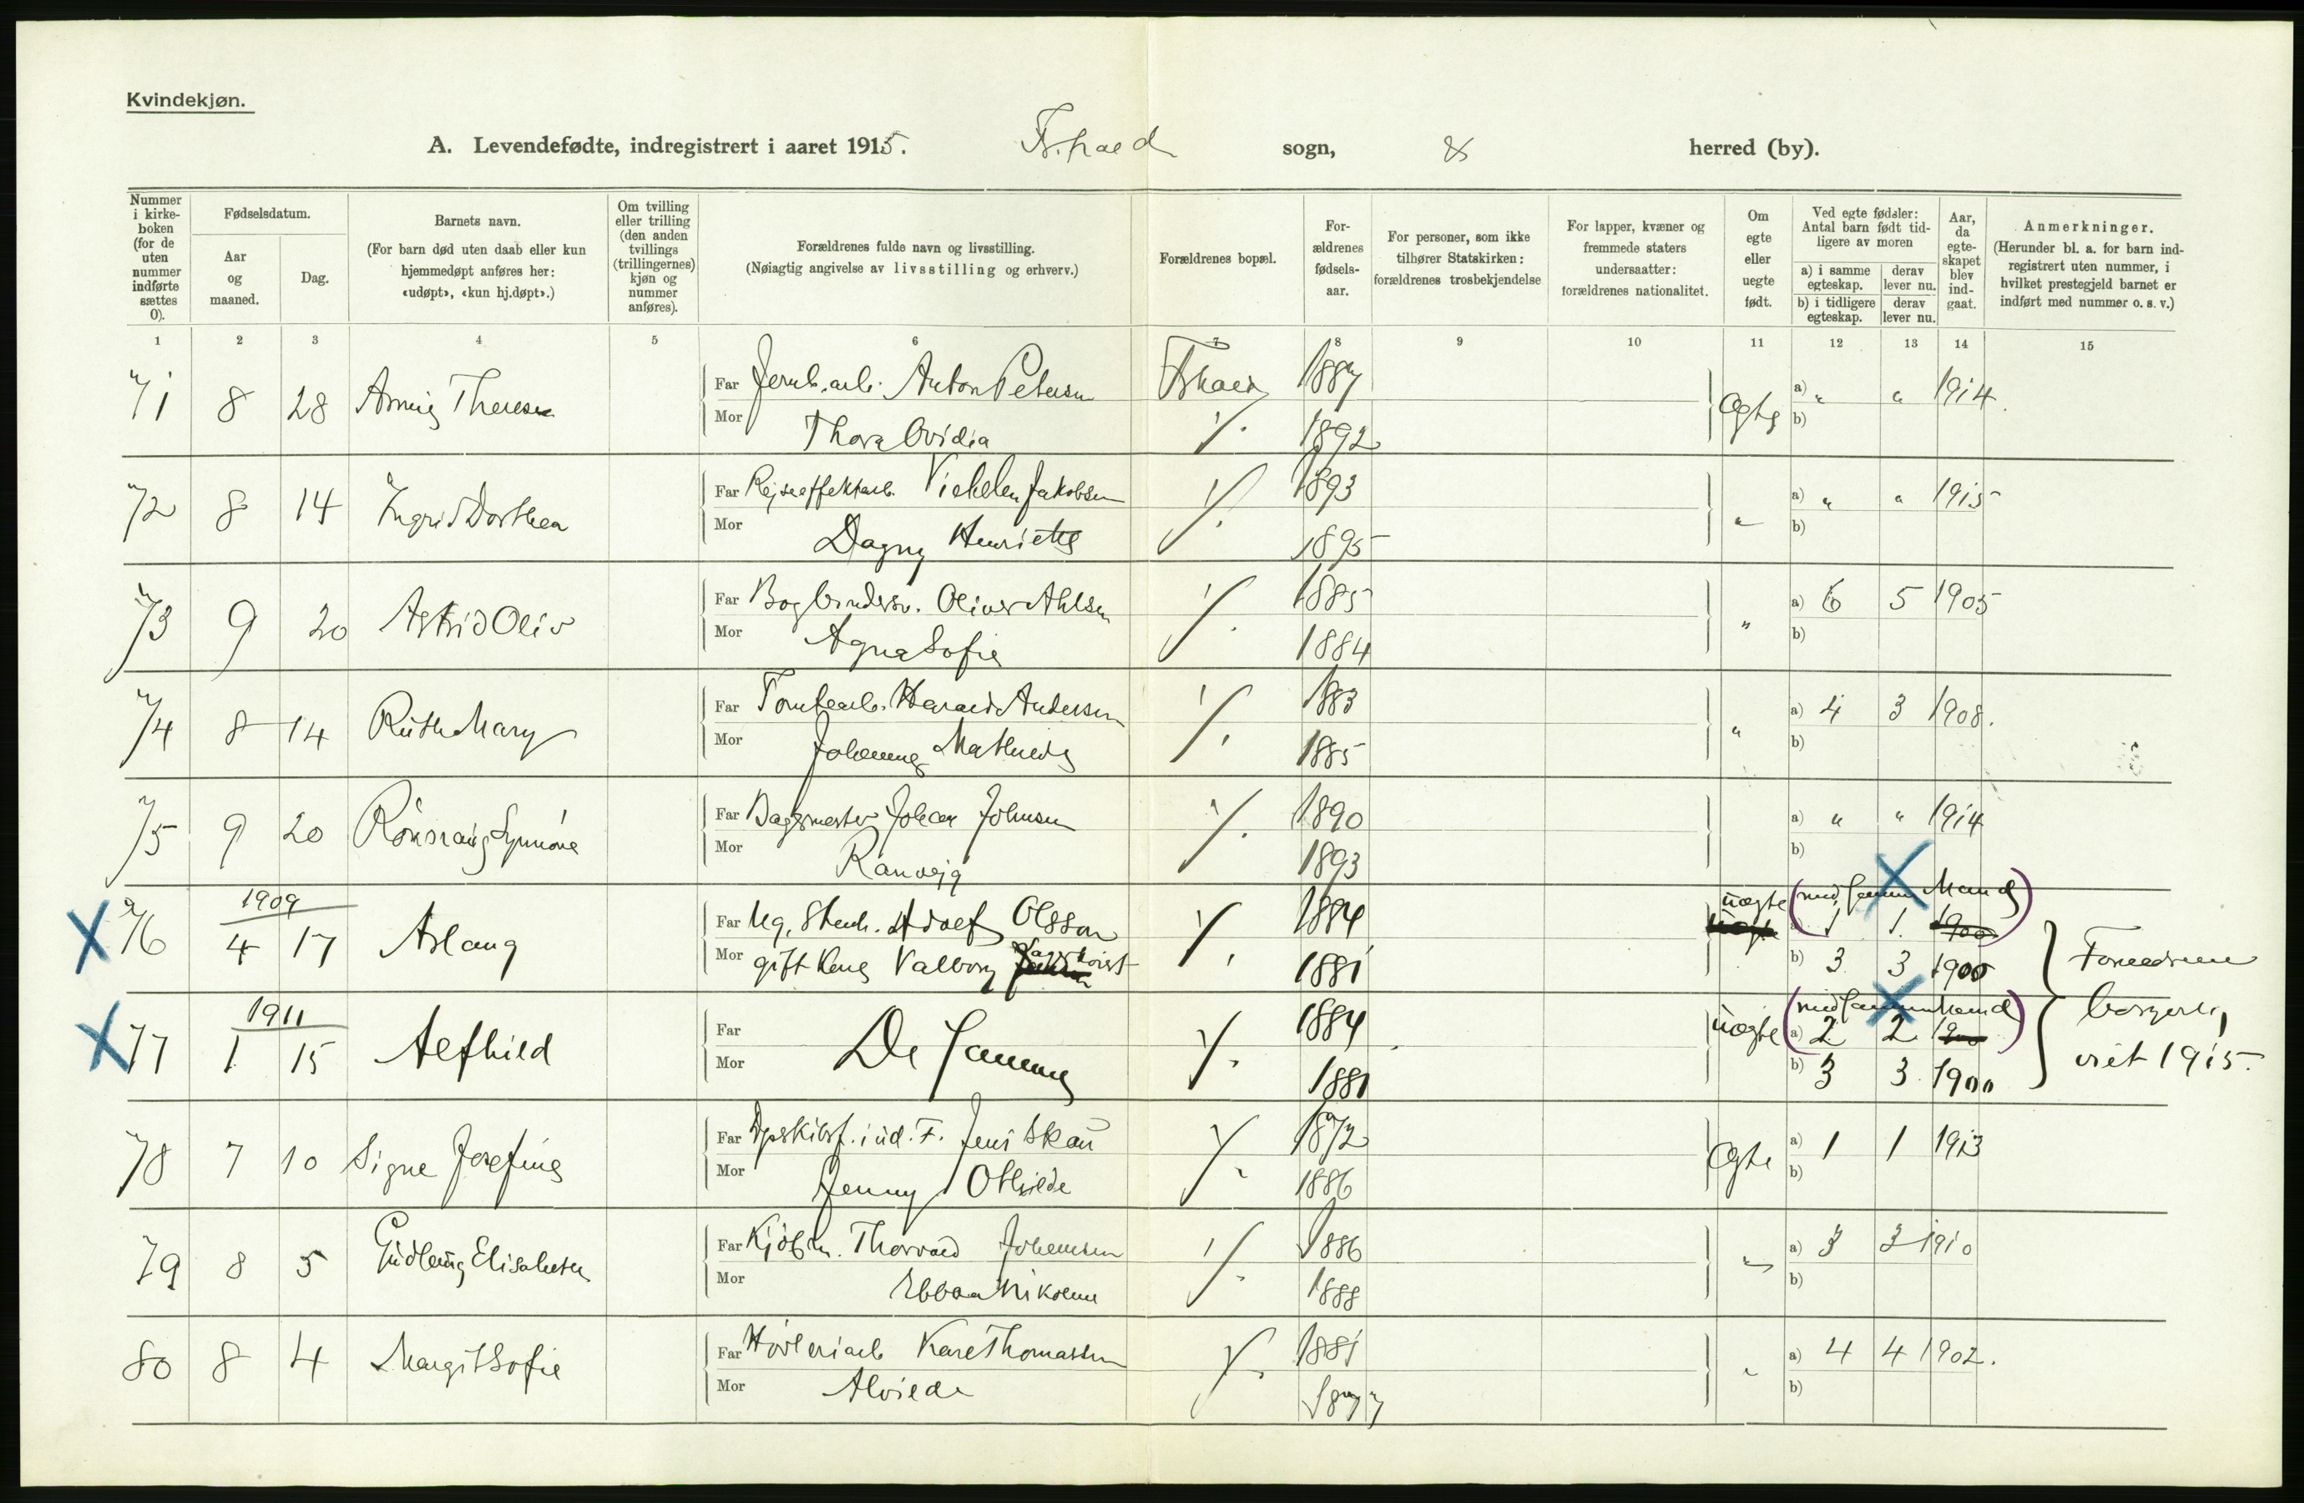 Kvindekjøn.
A. Levendefødte, indregistrert i aaret 1915. Fr.hald sogn, herred (by).
Nummer i kirkeboken (for de uten nummer indførte sættes 0).
Fødselsdatum.
Aar og maaned.
Dag.
Barnets navn.
(For barn død uten daab eller kun hjemmedøpt anføres her: «udøpt», «kun hj.døpt».)
Om tvilling eller trilling (den anden tvillings (trillingernes) kjøn og nummer anføres).
Forældrenes fulde navn og livsstilling.
(Nøiagtig angivelse av livsstilling og erhverv.)
Forældrenes bopæl.
Forældrenes fødselsaar.
For personer, som ikke tilhører Statskirken: forældrenes trosbekjendelse
For lapper, kvæner og fremmede staters undersaatter: forældrenes nationalitet.
Om egte eller uegte født.
Ved egte fødsler: Antal barn født tidligere av moren
a) i samme egteskap.
derav lever nu.
b) i tidligere egteskap.
derav lever nu.
Aar, da egteskapet blev indgaat.
Anmerkninger.
(Herunder bl. a. for barn indregistrert uten nummer, i hvilket prestegjeld barnet er indført med nummer o. s. v.)
1 2 3 4 5 6 7 8 9 10 11 12 13 14 15
71 8 28 Far Jernb.arb. Anton Petersen Fr.hald 1887 Egte a) " " 1914
Mor Thora Ovidia 1892 b)
72 8 14 Ingrid Dorthea Far Rejseeffektarb. Jakobsen 1893 " a) " " 1915
Mor Dagny Henriette 1895 b)
73 9 20 Astrid Oliv Far Bogbindersv. Oliver Ahlsen 1885 " a) 6 5 1905
Mor Agna Sofie 1884 b)
74 8 14 Ruth Mary Far Tomtearb. Harald Andersen 1883 " a) 4 3 1908.
Mor Johanne Mathilde 1885 b)
75 9 20 Far Bagermester Johan Johnsen 1890 a) " " 1914
Mor Ranveig 1893 b)
76 1909 4 17 Aslaug Far Ug. Stenh. Adolf Olsson 1884 uegte (med samme Mand) a) 1 1. 1900
Mor gift Valborg 1881 b) 3 3 1900
77 1911 1 15 Alfhild Far De Samme 1884 uegte (med samme Mand) a) 2 2
Mor 1881 b) 3 3 1900
Forældrene borgerl. viet 1915.
78 7 10 Signe Josefine Far Jens Skau 1872 Egte a) 1 1 1913
Mor Jenny Othilde 1886 b)
79 8 5 Gudlaug Elisabeth Far Kjøbm. Thorvald Johansen 1886 " a) 3 3 1910
Mor Ebba Nikoline 1888 b)
80 8 4 Margit Sofie Far Høvleriarb Karl Thomassen 1881 " a) 4 4 1902.
Mor Alvilde 1877 b)